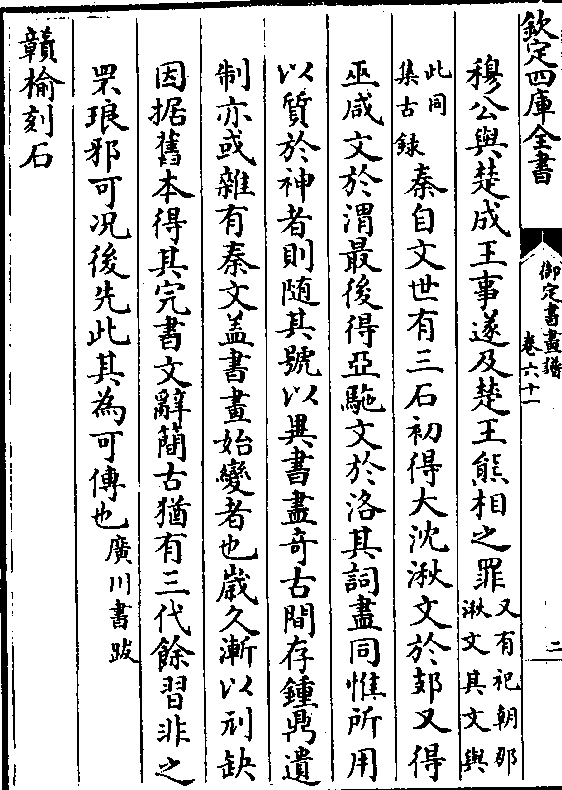 欽定四庫全書
御定書畫譜
卷六十一
二
穆公與楚成王事遂及楚王熊相之罪又有祀朝那
湫文其文與
此同
集古録秦自文世有三石初得大沈湫文於郊又得
巫咸文於渭最後得亞駞文於洛其詞盡同惟所用
以質於神者則随其號以異書盡竒古間存鍾鼎遺
制亦或雜有秦文盖書畫始變者也嵗久漸以刓缺
因据舊本得其完書文辭簡古猶有三代餘習非之
罘琅邪可况後先此其為可傳也廣川書跋
贛榆刻石